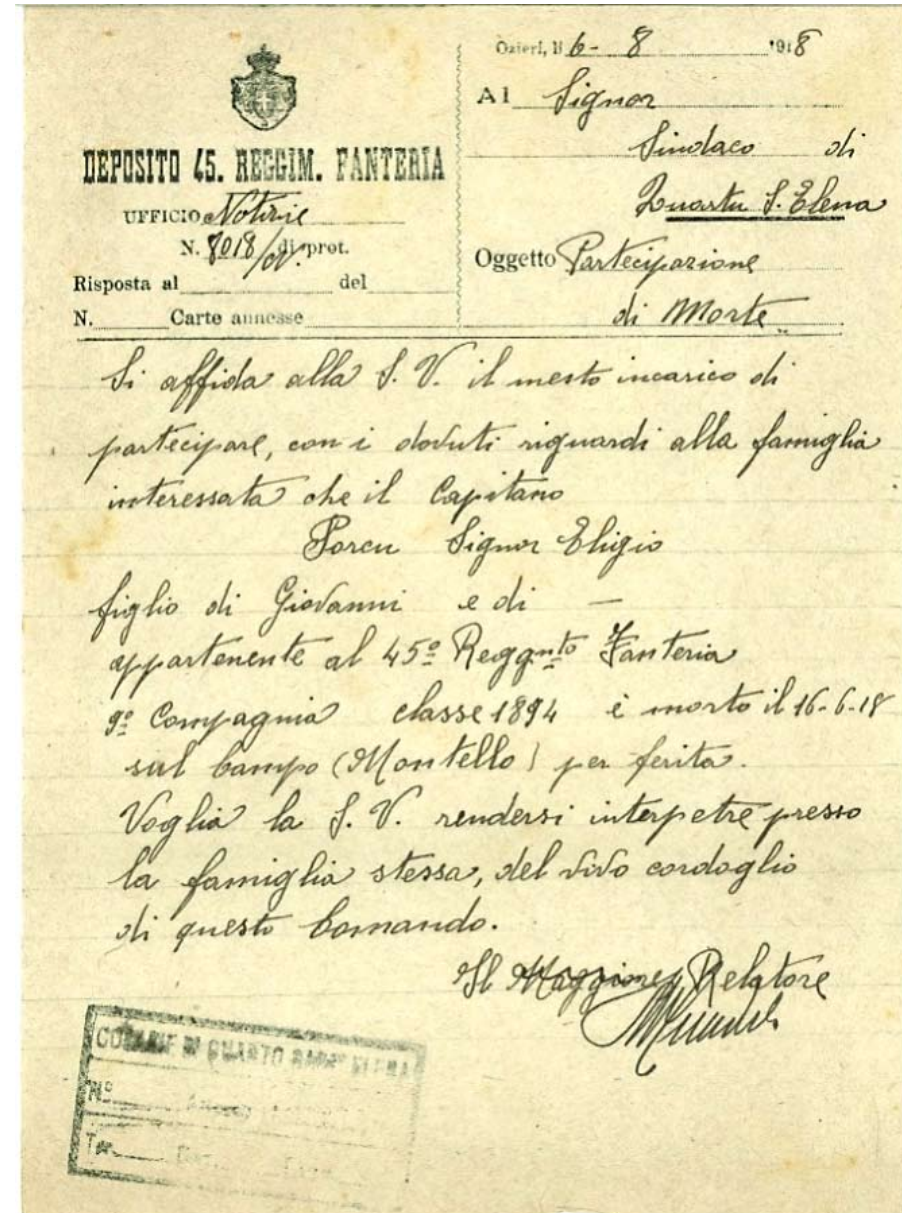 DEPOSITO 45. REGGIM. FANTERIA
UFFICIO Notizie
N. 8018/ di prot.
Risposta al del
N. Carte annesse
Ozieri, li 6 - 8 1918
Al Signor
Sindaco di
Quartu S. Elena
Oggetto Partecipazione
di Morte
Si affida alla S. V. il mesto incarico di
partecipare, con i dovuti riguardi alla famiglia
interessata che il Capitano
Porcu Signor Eligio
figlio di Giovanni e di —
appartenente al 45º Reggnto Fanteria
9ª Compagnia classe 1894 è morto il 16-6-18
sul Campo (Montello) per ferita.
Voglia la S. V. rendersi interpetre presso
la famiglia stessa, del vivo cordoglio
di questo Comando.
Il Maggiore Relatore
COMUNE DI QUARTO SANT' ELENA
Nº